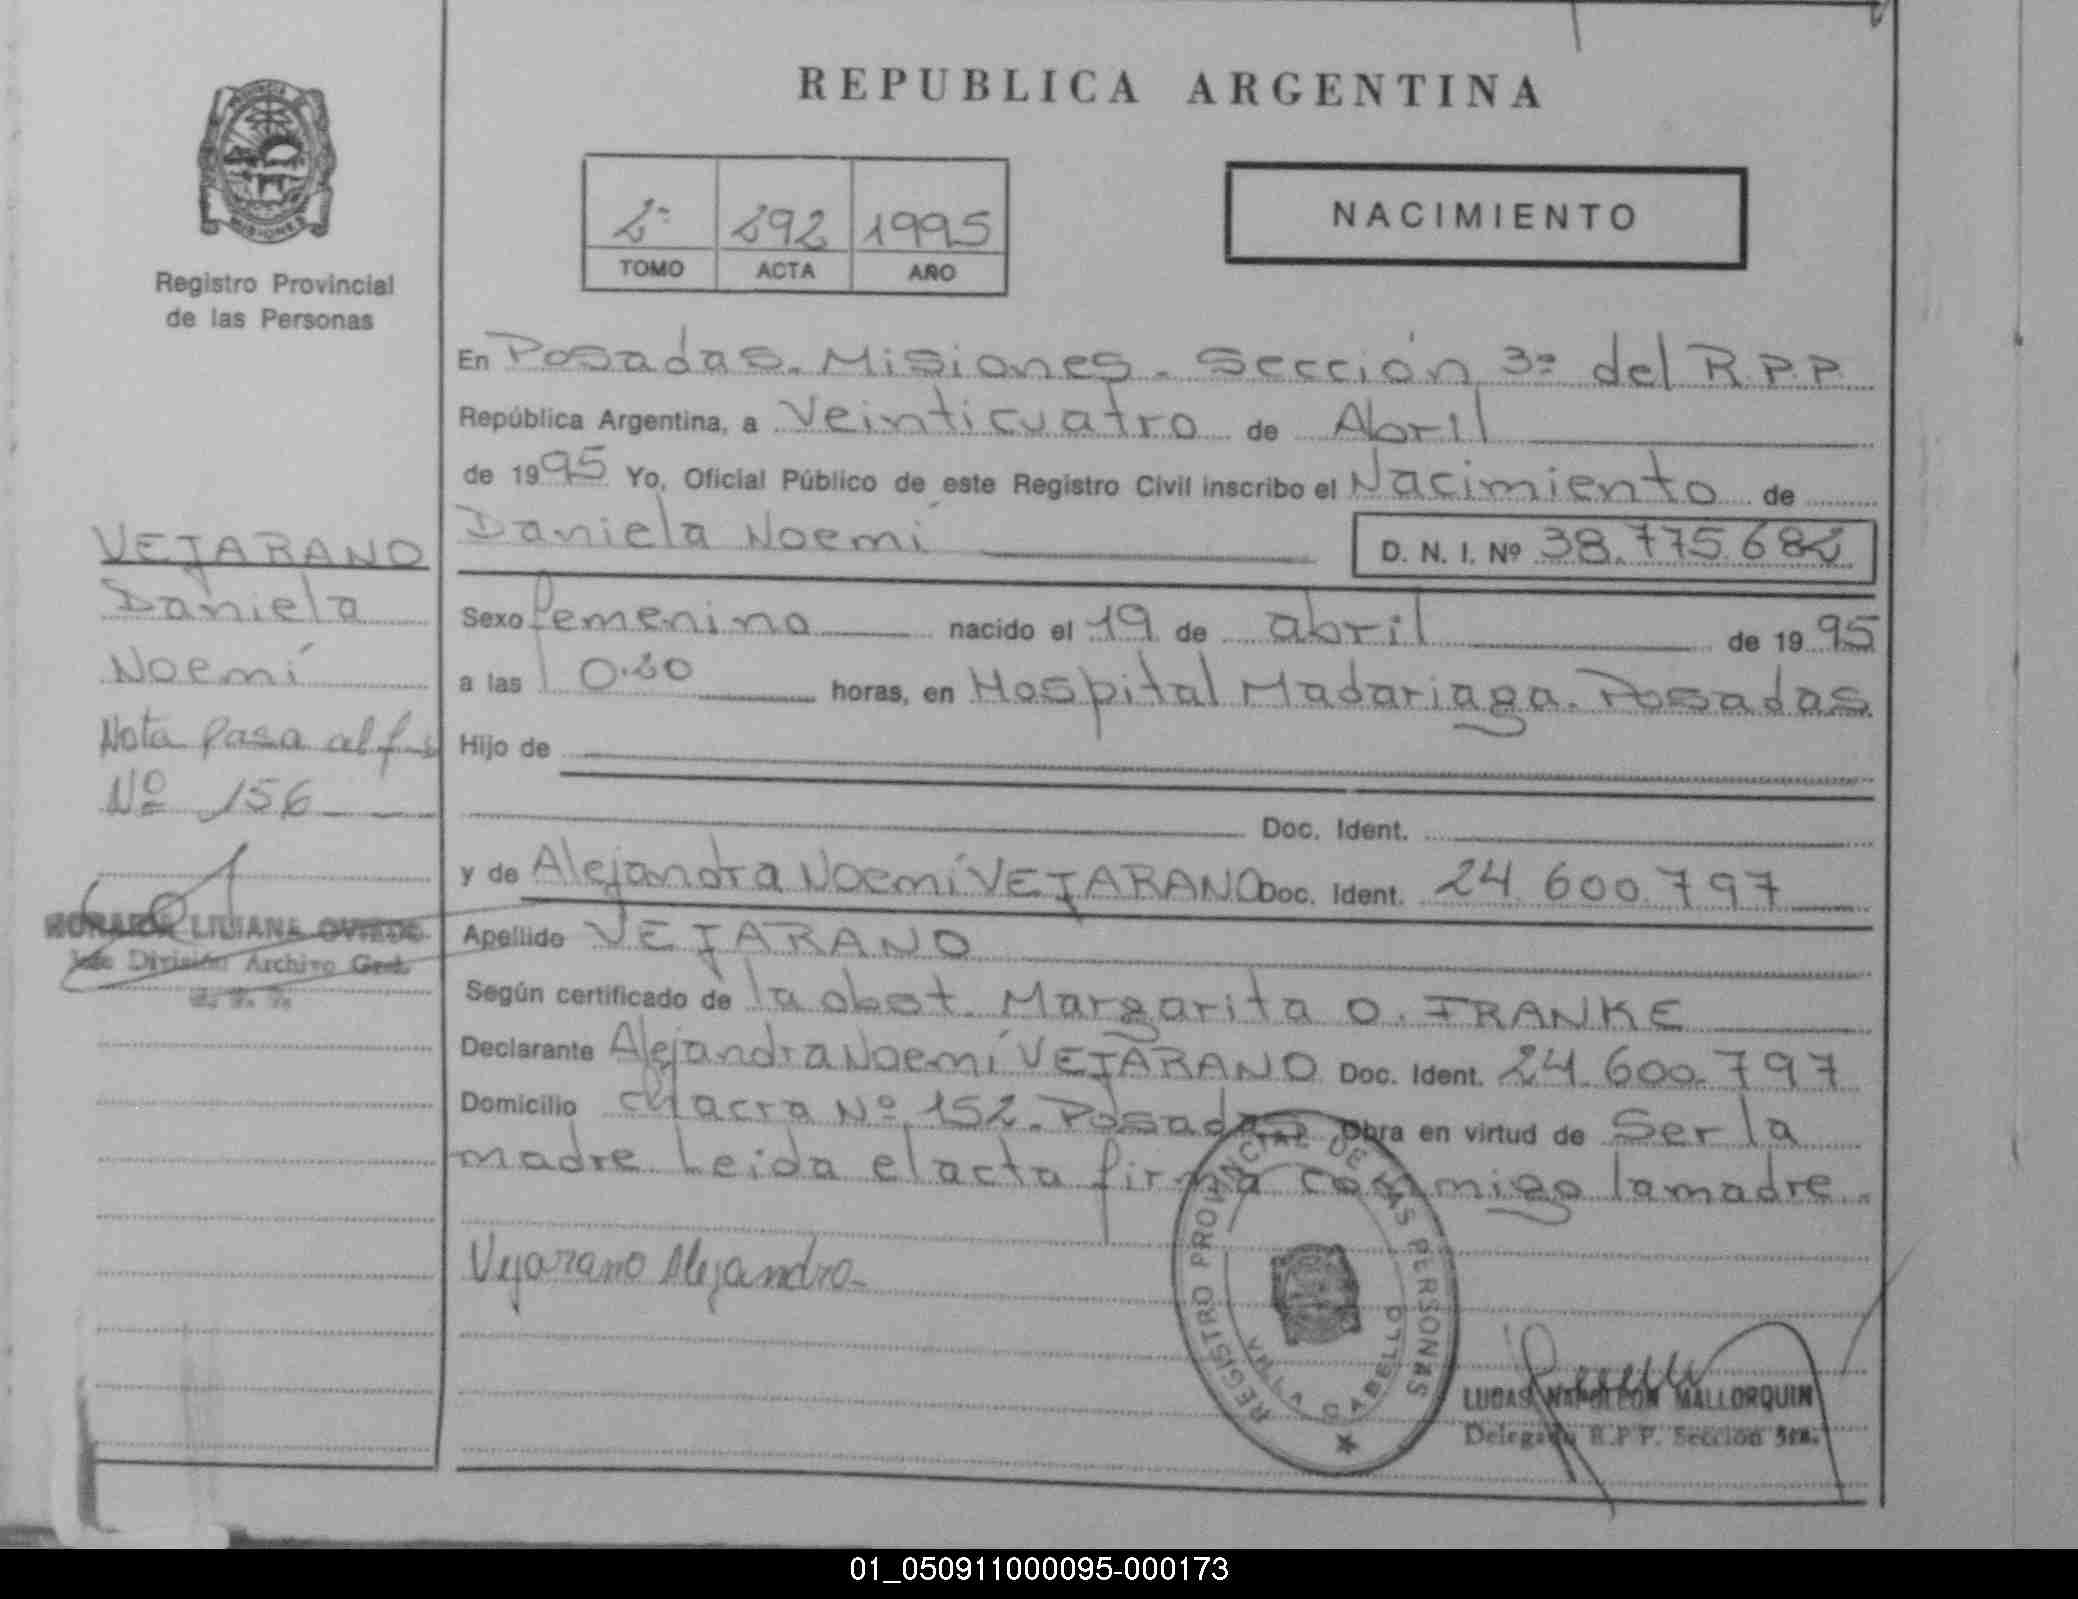 REPUBLICA ARGENTINA
PROVINCIA
MISIONES
Registro Provincial
de las Personas
2º 292 1995
TOMO ACTA AÑO
NACIMIENTO
En Posadas. Misiones. Sección 3ª del R.P.P.
República Argentina, a Veinticuatro de Abril
de 1995 Yo, Oficial Público de este Registro Civil inscribo el Nacimiento de
Daniela Noemí D. N. I. Nº 38.775.682
Sexo femenino nacido el 19 de abril de 1995
a las 0.20 horas, en Hospital Madariaga. Posadas
Hijo de
Doc. Ident.
y de Alejandra Noemí VEJARANO Doc. Ident. 24.600.797
Apellido VEJARANO
Según certificado de la obst. Margarita O. FRANKE
Declarante Alejandra Noemí VEJARANO Doc. Ident. 24.600.797
Domicilio Chacra Nº 152. Posadas Obra en virtud de Ser la
madre. Leida el acta firma conmigo la madre.
Vejarano Alejandra
VEJARANO
Daniela
Noemí
Nota pasa al
Nº 156
LILIANA OVIEDO
Jefe División Archivo Gral.
R. P. P.
REGISTRO PROVINCIAL DE LAS PERSONAS
VILLA CABELLO
LUCAS NAPOLEON MALLORQUIN
Delegado R.P.P. Sección 3ra.
01_050911000095-000173